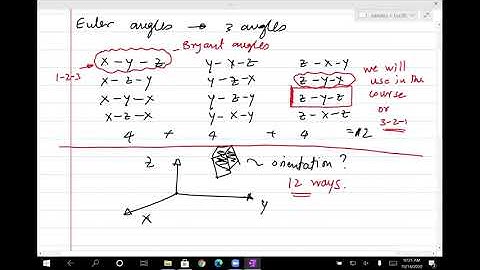 Euler angles → 3 angles
Bryant angles
1-2-3
x-y-z y-x-z z-x-y
x-z-y y-z-x z-y-x
x-y-x y-z-y z-y-z
x-z-x y-x-y z-x-z
we will
use in the
course
or
3-2-1
4 + 4 + 4 = 12
z
~ orientation?
12 ways.
x
y